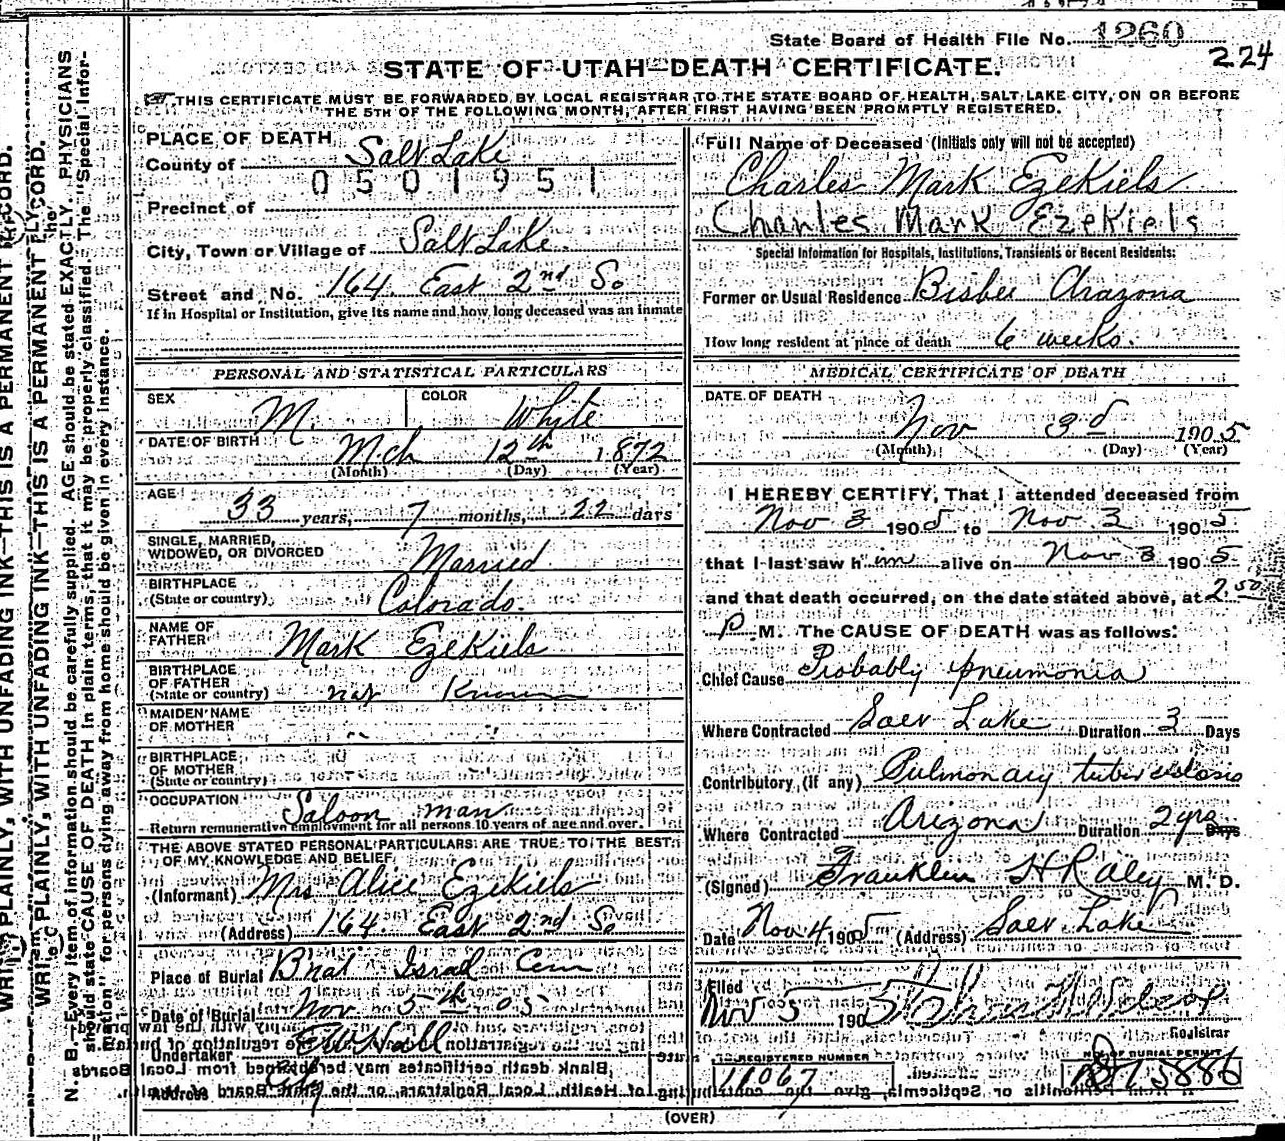 State Board of Health File No. 1260
224
STATE OF UTAH—DEATH CERTIFICATE.
THIS CERTIFICATE MUST BE FORWARDED BY LOCAL REGISTRAR TO THE STATE BOARD OF HEALTH, SALT LAKE CITY, ON OR BEFORE
THE 5TH OF THE FOLLOWING MONTH, AFTER FIRST HAVING BEEN PROMPTLY REGISTERED.
PLACE OF DEATH
County of Salt Lake
0501951
Precinct of
City, Town or Village of Salt Lake
Street and No. 164 East 2nd So
If in Hospital or Institution, give its name and how long deceased was an inmate
PERSONAL AND STATISTICAL PARTICULARS
SEX M. COLOR White
DATE OF BIRTH Mch 12th 1872
(Month) (Day) (Year)
AGE
33 years, 7 months, 22 days
SINGLE, MARRIED,
WIDOWED, OR DIVORCED Married
BIRTHPLACE
(State or country) Colorado.
NAME OF
FATHER Mark Ezekiels
BIRTHPLACE
OF FATHER
(State or country) not Known
MAIDEN NAME
OF MOTHER " "
BIRTHPLACE
OF MOTHER
(State or country)
OCCUPATION Saloon man
Return remunerative employment for all persons 10 years of age and over.
THE ABOVE STATED PERSONAL PARTICULARS ARE TRUE TO THE BEST
OF MY KNOWLEDGE AND BELIEF
(Informant) Mrs Alice Ezekiels
(Address) 164 East 2nd So
Place of Burial Bnai Israel Cem
Date of Burial Nov 5th 05
Undertaker E W Hall
Address City
Full Name of Deceased (Initials only will not be accepted)
Charles Mark Ezekiels
Charles Mark Ezekiels
Special Information for Hospitals, Institutions, Transients or Recent Residents:
Former or Usual Residence Bisbee Arazona
How long resident at place of death 6 weeks.
MEDICAL CERTIFICATE OF DEATH
DATE OF DEATH
Nov 3d 1905
(Month) (Day) (Year)
I HEREBY CERTIFY, That I attended deceased from
Nov 3 1905 to Nov 3 1905
that I last saw him alive on Nov 3 1905
and that death occurred, on the date stated above, at 2.50
P.M. The CAUSE OF DEATH was as follows:
Chief Cause Probably pneumonia
Where Contracted Salt Lake Duration 3 Days
Contributory (if any) Pulmonary tuberculosis
Where Contracted Arizona Duration 2 yrs Days
(Signed) Franklin H Raley M. D.
Date Nov 4 1905 (Address) Salt Lake
Filed
Nov 5 1905
Registrar
REGISTERED NUMBER
11067
NO. OF BURIAL PERMIT
(OVER)
WRITE PLAINLY, WITH UNFADING INK—THIS IS A PERMANENT RECORD.
WRITE PLAINLY, WITH UNFADING INK—THIS IS A PERMANENT RECORD.
N. B.—Every item of information should be carefully supplied. AGE should be stated EXACTLY. PHYSICIANS
should state CAUSE OF DEATH in plain terms, that it may be properly classified. The "Special Infor-
mation" for persons dying away from home should be given in every instance.